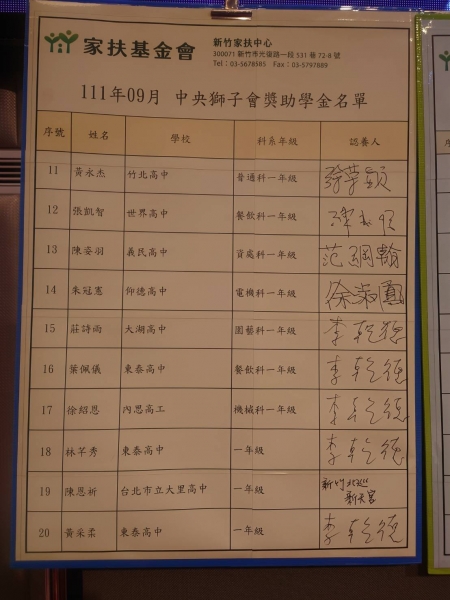 家扶基金會
新竹家扶中心
300071 新竹市光復路一段 531 巷 72-8 號
Tel：03-5678585 Fax：03-5797889
111年09月 中央獅子會獎助學金名單
序號 姓名 學校 科系年級 認養人
11 黃永杰 竹北高中 普通科一年級
12 張凱智 世界高中 餐飲科一年級
13 陳姿羽 義民高中 資處科一年級 范綱翰
14 朱冠憲 仰德高中 電機科一年級
15 莊詩雨 大湖高中 園藝科一年級 李乾德
16 葉佩儀 東泰高中 餐飲科一年級 李乾德
17 徐紹恩 內思高工 機械科一年級 李乾德
18 林芊秀 東泰高中 一年級 李乾德
19 陳恩祈 台北市立大里高中 一年級 新竹北巡
新天宮
20 黃采柔 東泰高中 一年級 李乾德